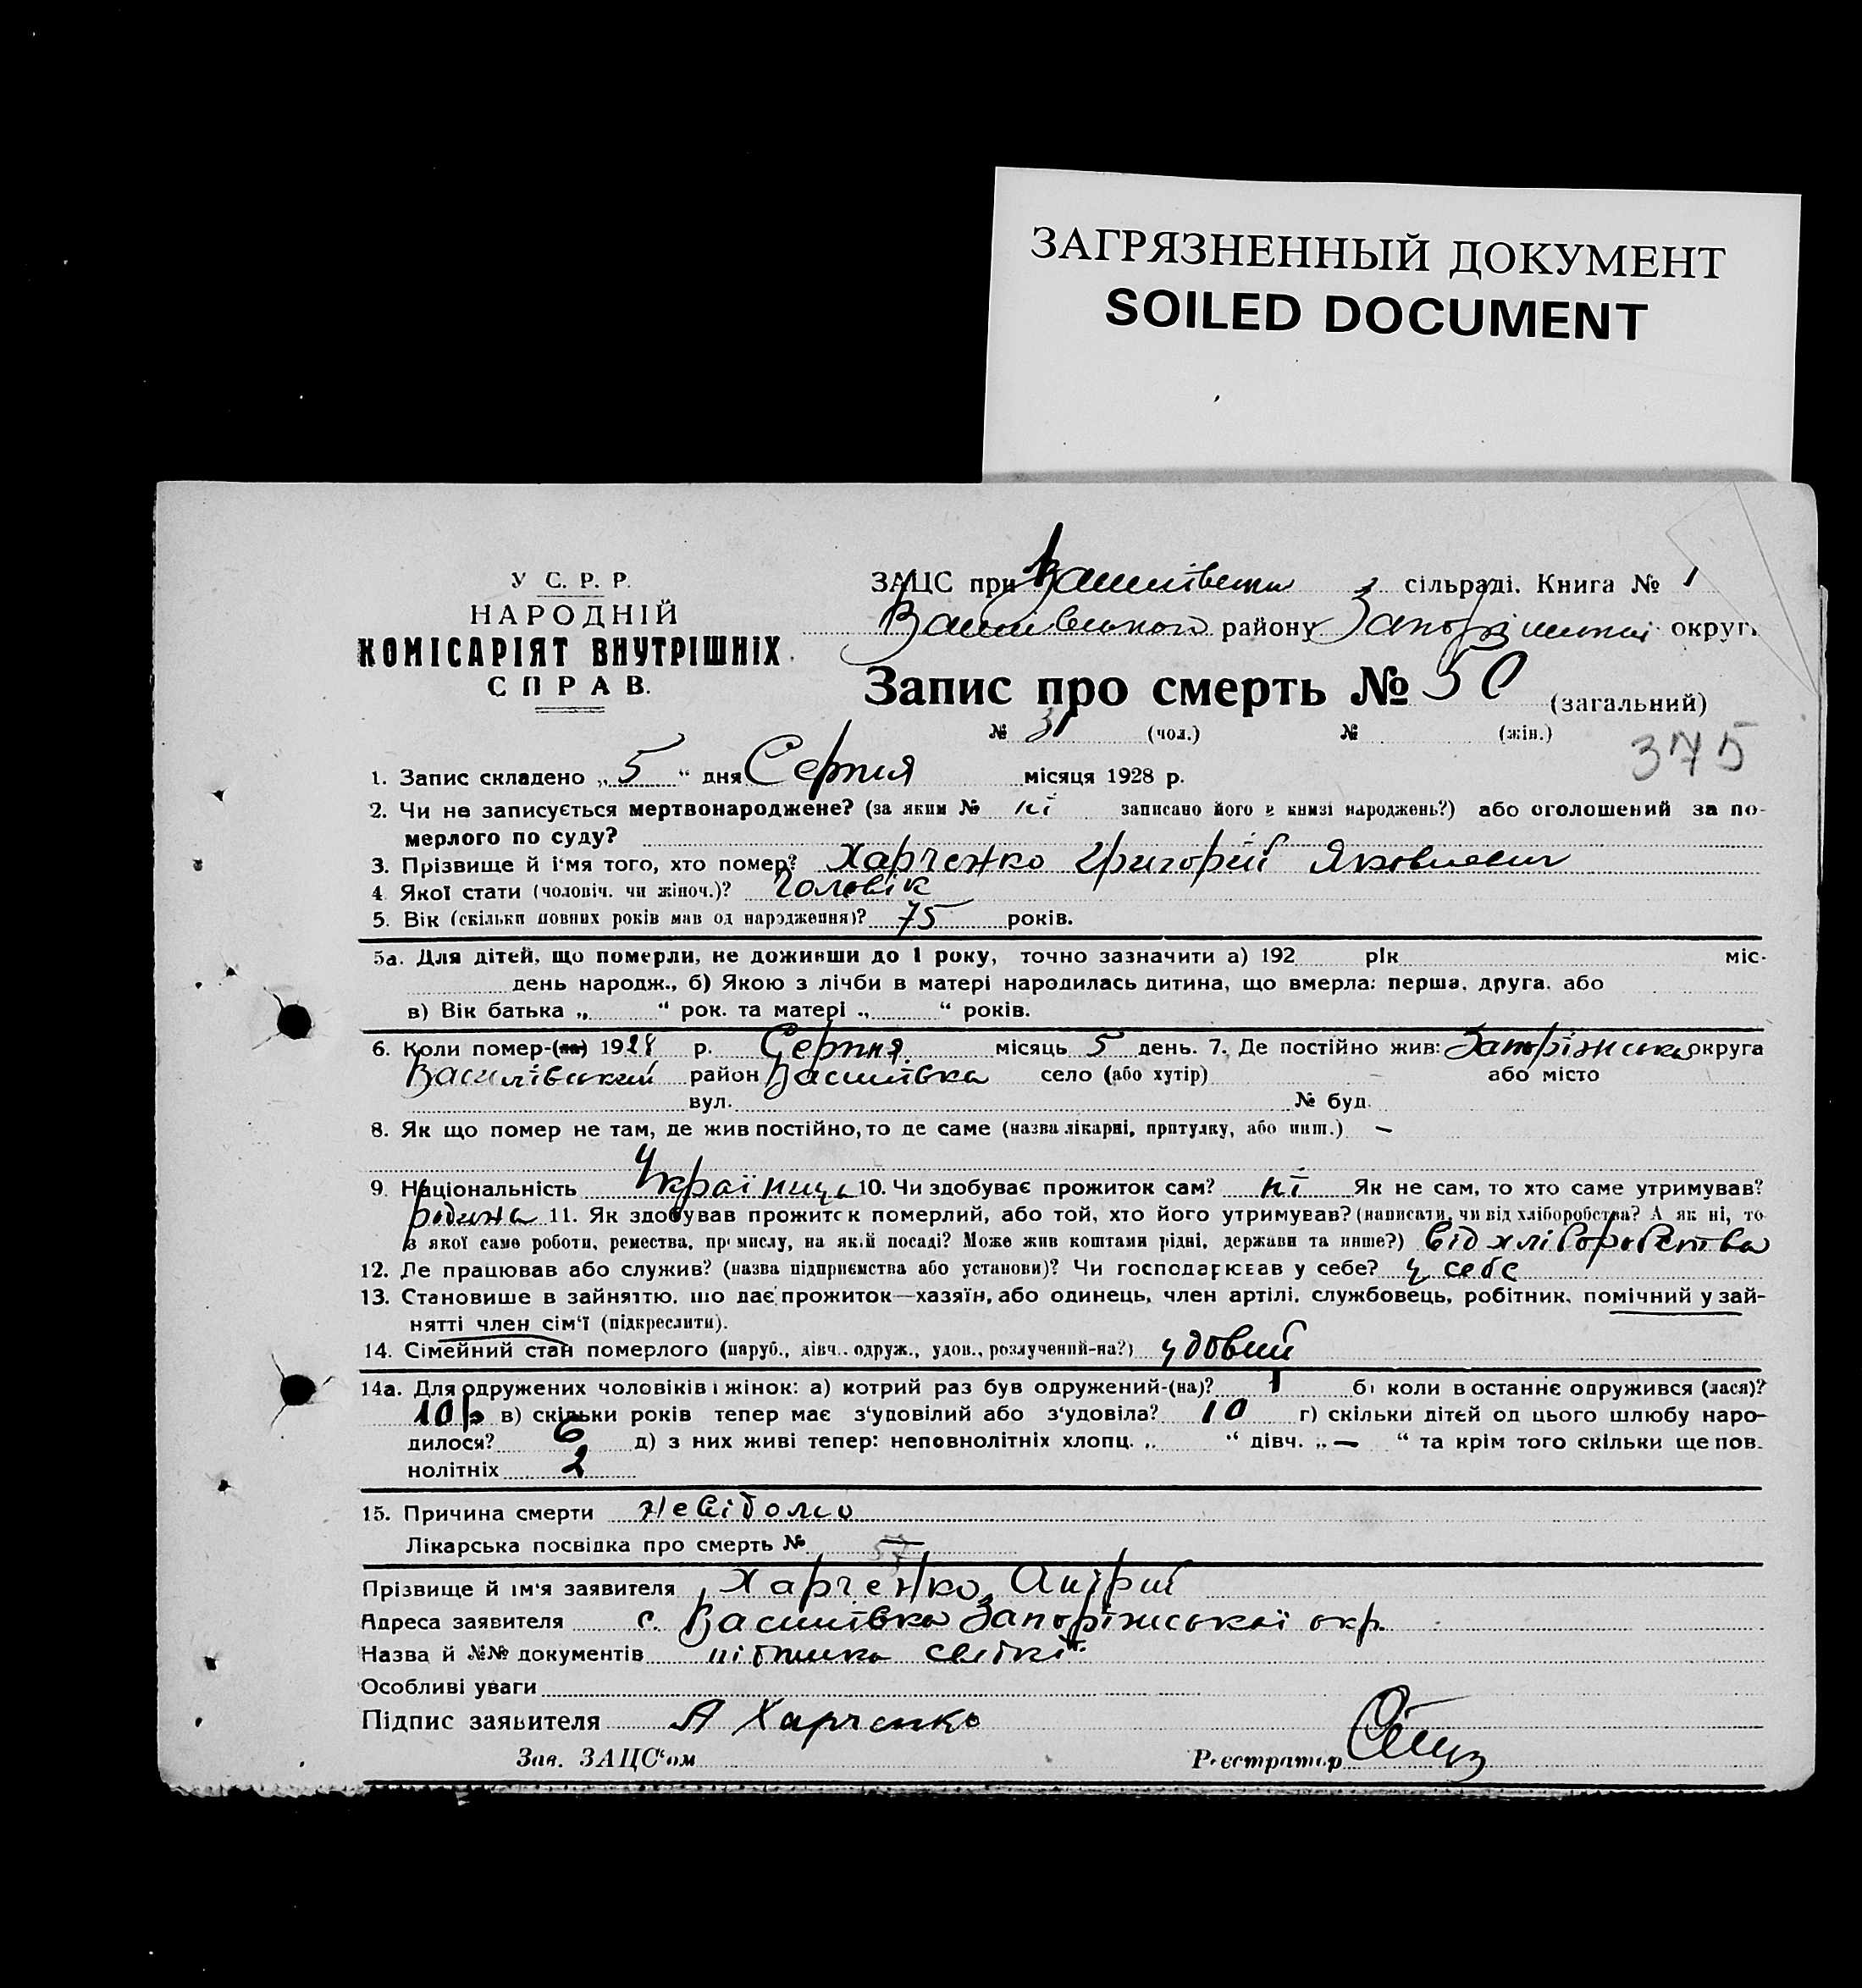 ЗАГРЯЗНЕННЫЙ ДОКУМЕНТ
SOILED DOCUMENT
У С. Р. Р.
НАРОДНІЙ
КОМІСАРІЯТ ВНУТРІШНІХ
СПРАВ.
ЗАЦС при Василівській сільраді. Книга № 1
Василівського району Запоріжської округи
Запис про смерть № 50 (загальний)
№ 31 (чол.) № (жін.)
375
1. Запис складено „ 5 “ дня Серпня місяця 1928 р.
2. Чи не записується мертвонароджене? (за яким № ні записано його в книзі народжень?) або оголошений за по-
мерлого по суду?
3. Прізвище й і'мя того, хто помер? Харченко Григорій Яковлевич
4 Якої стати (чоловіч. чи жіноч.)? Чоловік
5. Вік (скільки повних років мав од народження)? 75 років.
5а. Для дітей, що померли, не доживши до 1 року, точно зазначити а) 192 рік міс.
день народж., б) Якою з лічби в матері народилась дитина, що вмерла: перша, друга, або
в) Вік батька „ “ рок. та матері „ “ років.
6. Коли помер-(ла) 1928 р. Серпня місяць 5 день. 7. Де постійно жив: Запоріжська округа
Василівський район Василівка село (або хутір) – або місто
вул. № буд.
8. Як що помер не там, де жив постійно, то де саме (назва лікарні, притулку, або инш.) –
9. Національність Українець 10. Чи здобуває прожиток сам? ні Як не сам, то хто саме утримував?
родина 11. Як здобував прожиток померлий, або той, хто його утримував? (написати, чи від хліборобства? А як ні, то
з якої саме роботи, ремества, промислу, на якій посаді? Може жив коштами рідні, держави та инше?) Від хліборобства
12. Де працював або служив? (назва підприємства або установи)? Чи господарював у себе? у себе
13. Становище в зайняттю, що дає прожиток—хазяїн, або одинець, член артілі, службовець, робітник, помічний у зай-
нятті член сім'ї (підкреслити).
14. Сімейний стан померлого (паруб., дівч.. одруж., удов., розлучений-на?) удовий
14а. Для одружених чоловіків і жінок: а) котрий раз був одружений-(на)? 1 б) коли востаннє одружився (лася)?
10р в) скільки років тепер має з'удовілий або з'удовіла? 10 г) скільки дітей од цього шлюбу наро-
дилося? 6 д) з них живі тепер: неповнолітніх хлопц. „ “ дівч. „ – “ та крім того скільки ще пов.
нолітніх 2
15. Причина смерти невідомо
Лікарська посвідка про смерть №
Прізвище й ім'я заявителя Харченко Андрій
Адреса заявителя с. Василівка Запоріжської окр.
Назва й №№ документів підписка свідків
Особливі уваги
Підпис заявителя А Харченко
Зав. ЗАЦС'ом Реєстратор